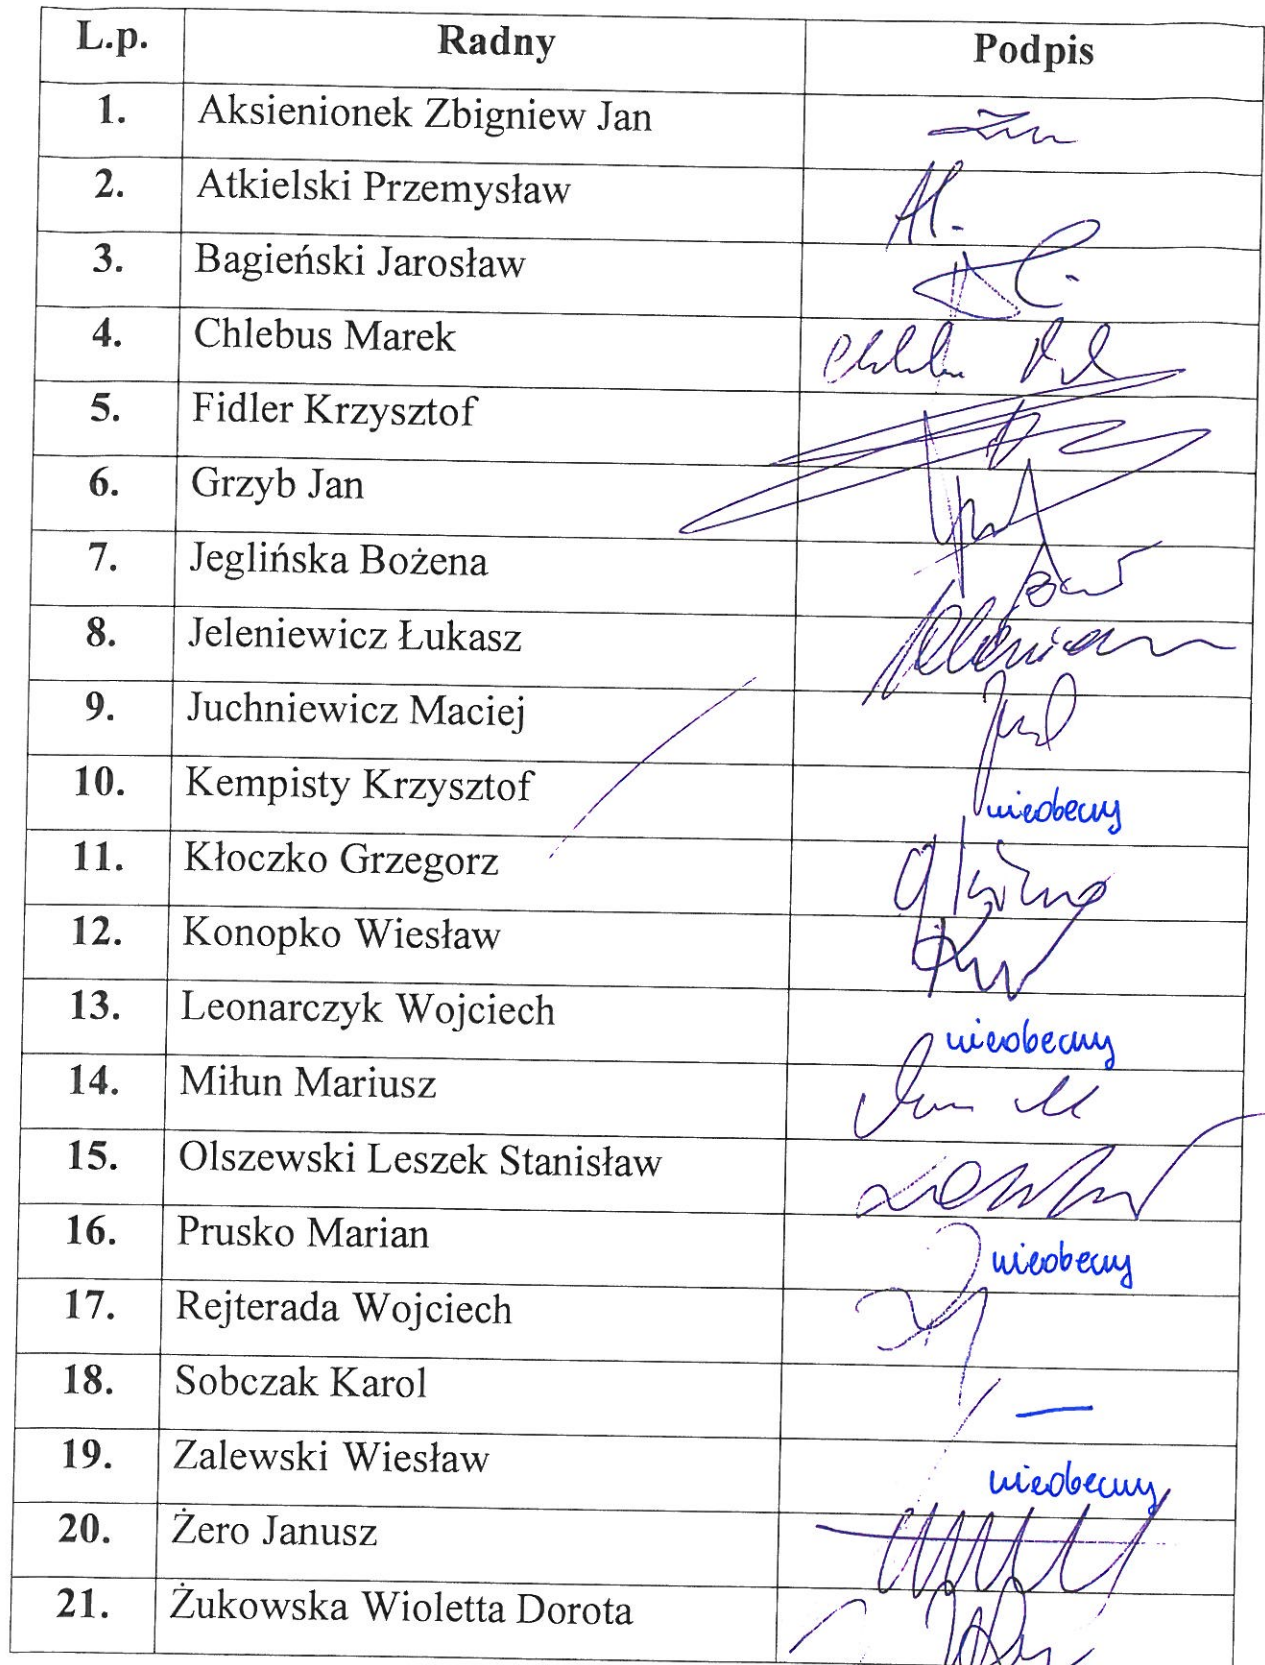 L.p. Radny Podpis
1. Aksienionek Zbigniew Jan
2. Atkielski Przemysław
3. Bagieński Jarosław
4. Chlebus Marek
5. Fidler Krzysztof
6. Grzyb Jan
7. Jeglińska Bożena
8. Jeleniewicz Łukasz
9. Juchniewicz Maciej
10. Kempisty Krzysztof nieobecny
11. Kłoczko Grzegorz
12. Konopko Wiesław
13. Leonarczyk Wojciech nieobecny
14. Miłun Mariusz
15. Olszewski Leszek Stanisław
16. Prusko Marian nieobecny
17. Rejterada Wojciech
18. Sobczak Karol —
19. Zalewski Wiesław nieobecny
20. Żero Janusz
21. Żukowska Wioletta Dorota